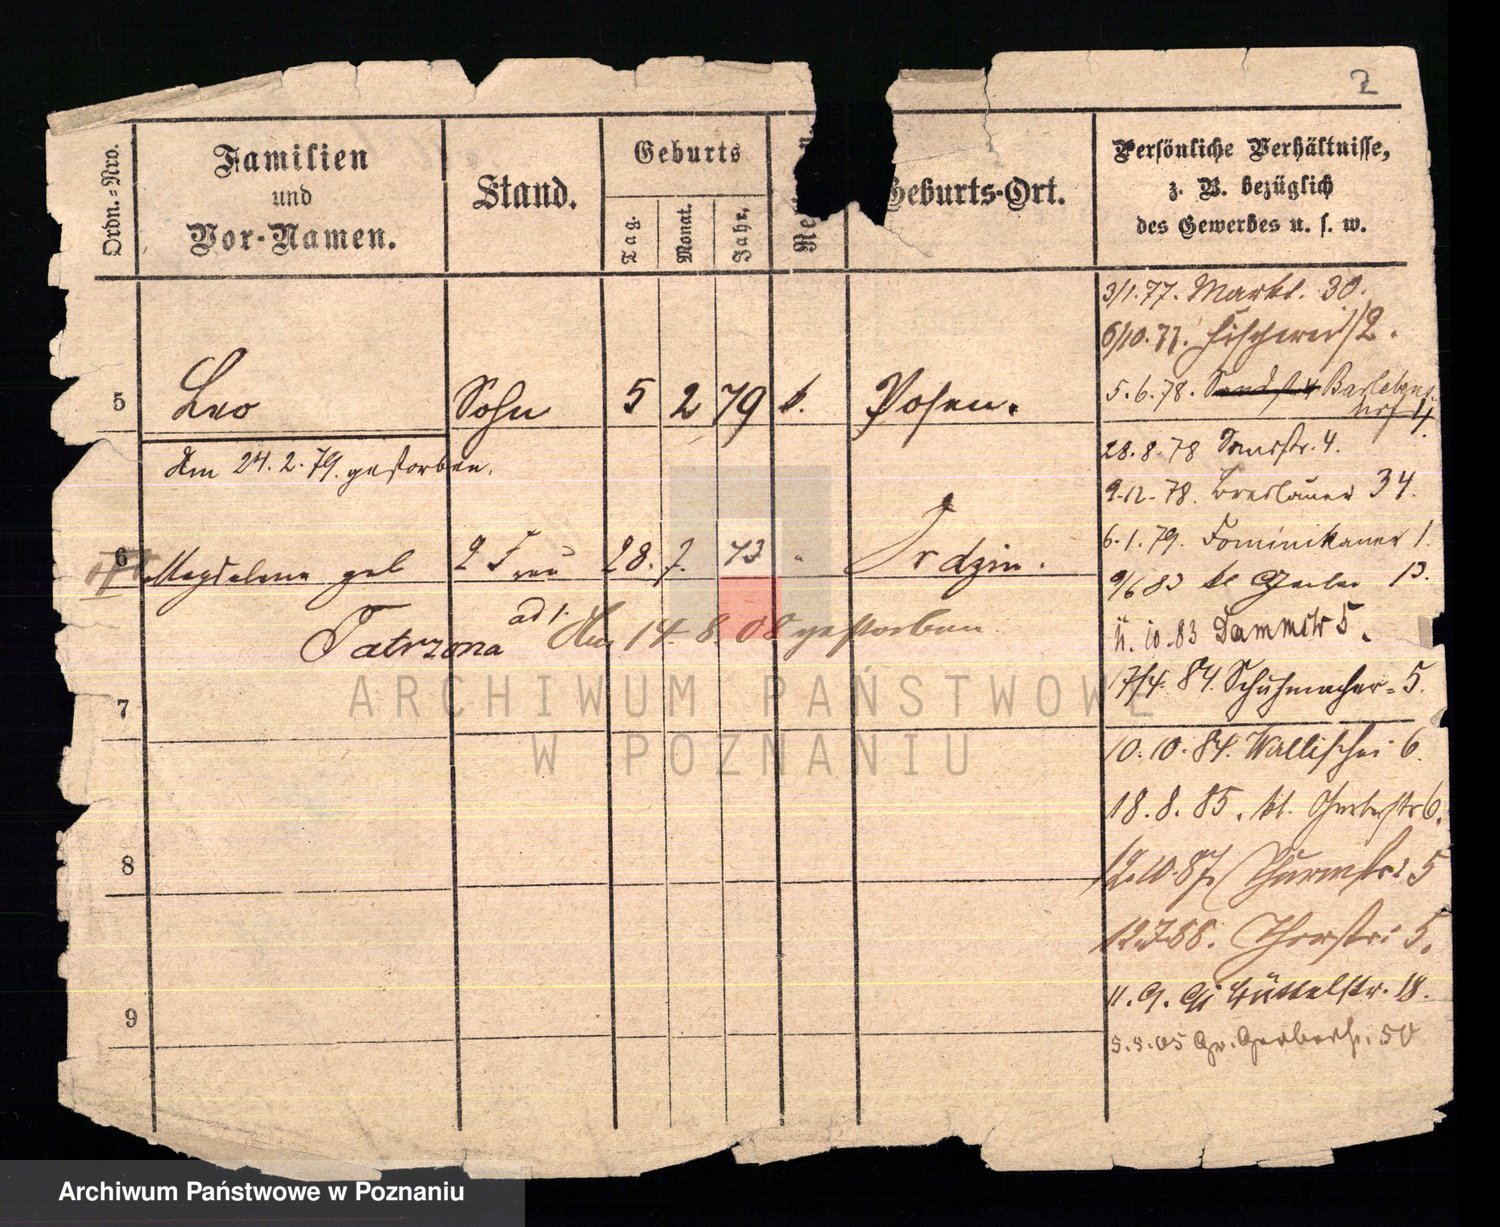 2
Ordn.-Nro.
Familien
und
Vor-Namen.
Stand.
Geburts
Tag.
Monat.
Jahr.
Geburts-Ort.
Persönliche Verhältnisse,
z. B. bezüglich
des Gewerbes u. s. w.
3/1.77. Markt. 30.
6/10.77. Fischerei 2.
5.6.78.
5 Leo Sohn 5 2 79 k. Posen.
Am 24.2.79. gestorben.
28.8.78 4.
9.12.78. Breslauer 34.
6.1.79. Dominikaner 1.
6 Magdalena geb 2 Frau 28. 7. 73 "
9/6 83 kl Gerber 13.
Patrzona ad 1. Am 14.8.08 gestorben
11.10.83 Dammstr 5.
17/4. 84. Schuhmacher- 5.
7
10.10.84. Wallischei 6.
18.8.85. kl. Gerberstr 6.
8
12.10.87. Thurmstr: 5
5.
11.9. Büttelstr. 18.
9
5.5.05 Gr. Gerberstr. 50
ARCHIWUM PAŃSTWOWE
W POZNANIU
Archiwum Państwowe w Poznaniu